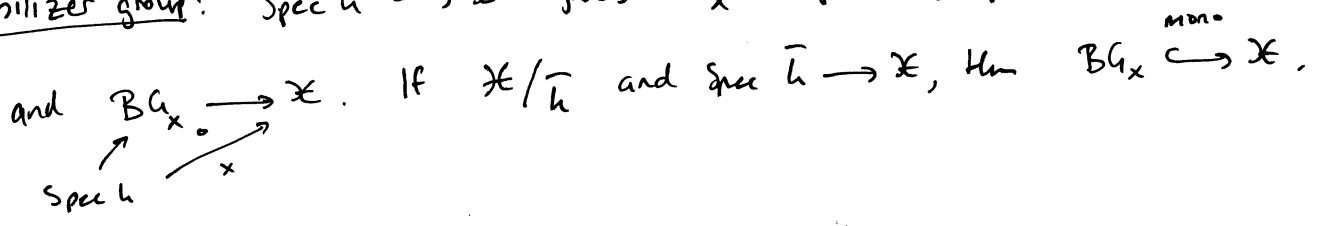 group: Spec k
mono
and BG_x → 𝒳. If 𝒳/k̄ and Spec k̄ → 𝒳, then BG_x ↪ 𝒳.
x
Spec k